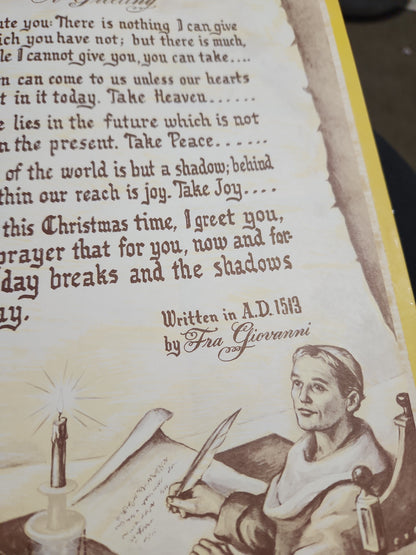 Greeting
ute you: There is nothing I can give
ich you have not; but there is much,
le I cannot give you, you can take....
n can come to us unless our hearts
t in it today. Take Heaven......
e lies in the future which is not
n the present. Take Peace......
of the world is but a shadow; behind
thin our reach is joy. Take Joy....
this Christmas time, I greet you,
prayer that for you, now and for-
day breaks and the shadows
ay.
Written in A.D. 1513
by Fra Giovanni